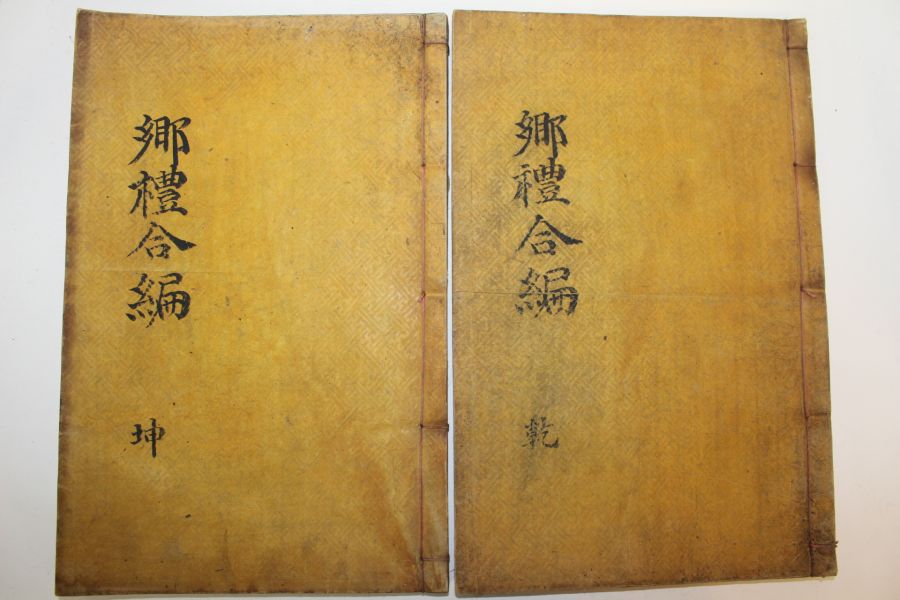 鄕禮合編
乾
鄕禮合編
坤